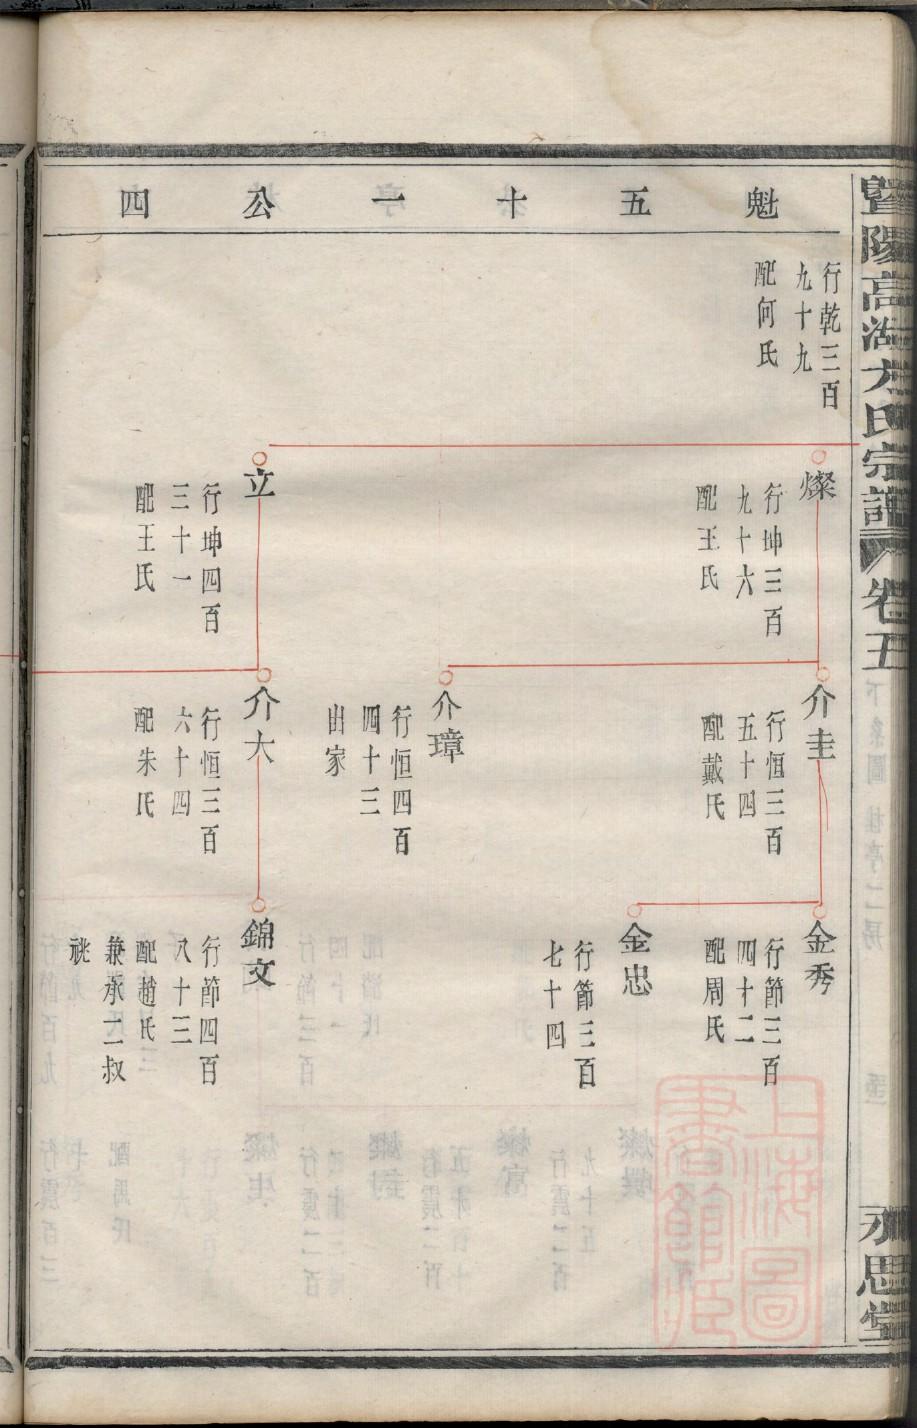 暨陽高湖方氏宗譜
卷五
下系圖 桂亭二房
永思堂
魁五十一公四
行乾三百
九十九
配何氏
燦
行坤三百
九十六
配王氏
立
行坤四百
三十一
配王氏
介圭
行恒三百
五十四
配戴氏
介璋
行恒四百
四十三
出家
介大
行恒三百
六十四
配朱氏
金秀
行節三百
四十二
配周氏
金忠
行節三百
七十四
錦文
行節四百
八十三
配趙氏
兼承二叔
祧
上海圖
書館藏